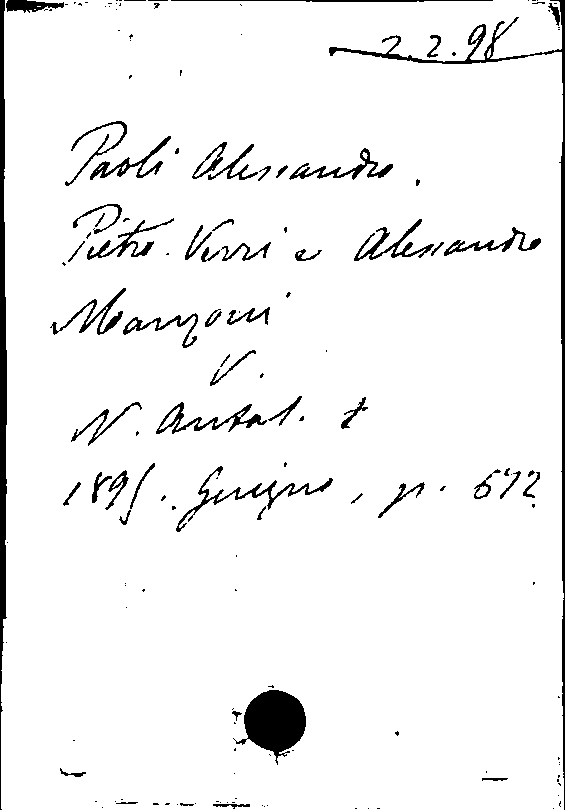 2.2.98
Paoli Alessandro.
Pietro Verri e Alessandro
Manzoni
V.
N. Antol.
1895. Giugno, p. 672